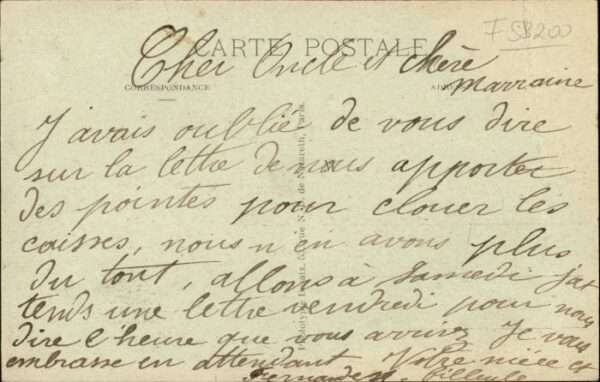 F 58200
CARTE POSTALE
Cher Oncle et chère
Marraine
CORRESPONDANCE
J'avais oublié de vous dire
sur la lettre de nous apporter
des pointes pour clouer les
caisses, nous n'en avons plus
du tout, allons à Samedi j'at
tends une lettre vendredi pour nous
dire l'heure que vous arrivez Je vous
embrasse en attendant Votre nièce et
Fernande filleule
de Nazareth, Paris